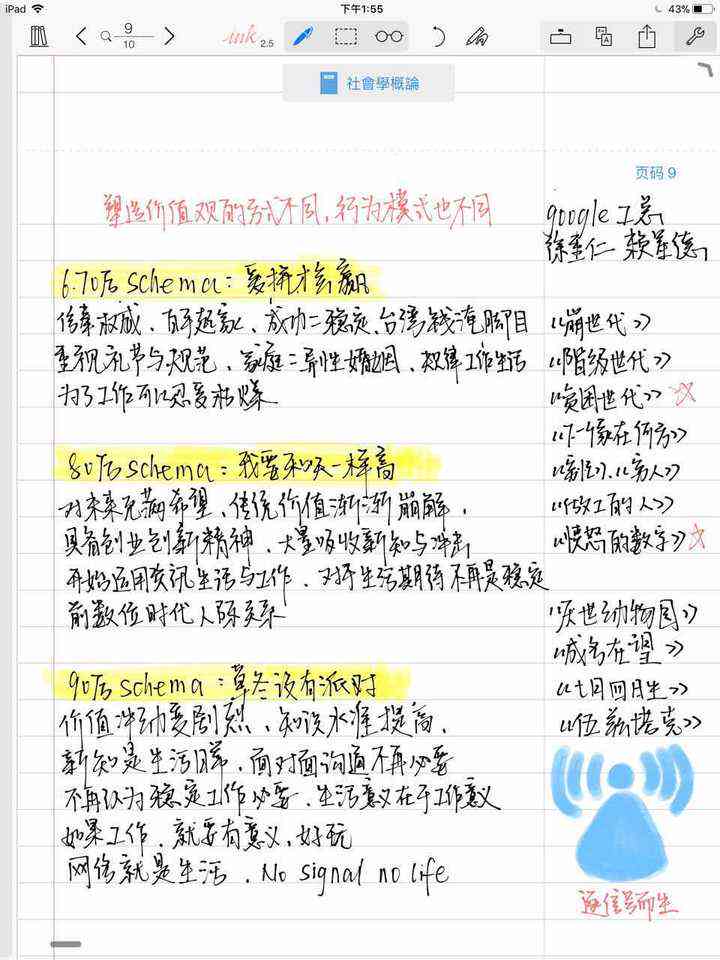 iPad
下午1:55
43%
9
10
ink 2.5
社會學概論
页码 9
塑造价值观的方式不同,行为模式也不同
google 工总
6.70后 schema:爱拼才会赢
信奉权威、百年趣家、成功=稳定、台湾钱淹脚目
重视礼节与规范、家庭=异性婚姻、规律工作生活
为了工作可以忍受
80后 schema:我要和天一样高
对未来充满希望、传统价值渐渐崩解、
具备创业创新精神、大量吸收新知与冲击
开始运用资讯生活与工作、对于生活期待不再是稳定
前数位时代人际关系
90后 schema:草冬没有派对
价值冲动变剧烈、知识水准提高、
新知是生活日常、面对面沟通不再必要
不再认为稳定工作必要、生活意义在于工作意义
如果工作、就要有意义、好玩
网络就是生活、No signal no life
徐重仁 赖慧德
《崩世代》
《阶级世代》
《贫困世代》
《下一个家在何方》
《穷忙》、《穷人》
《做工的人》
《愤怒的数字》
《厌世动物园》
《成名在望》
《七月四日生》
《伍兹塔克》
逐信号而生